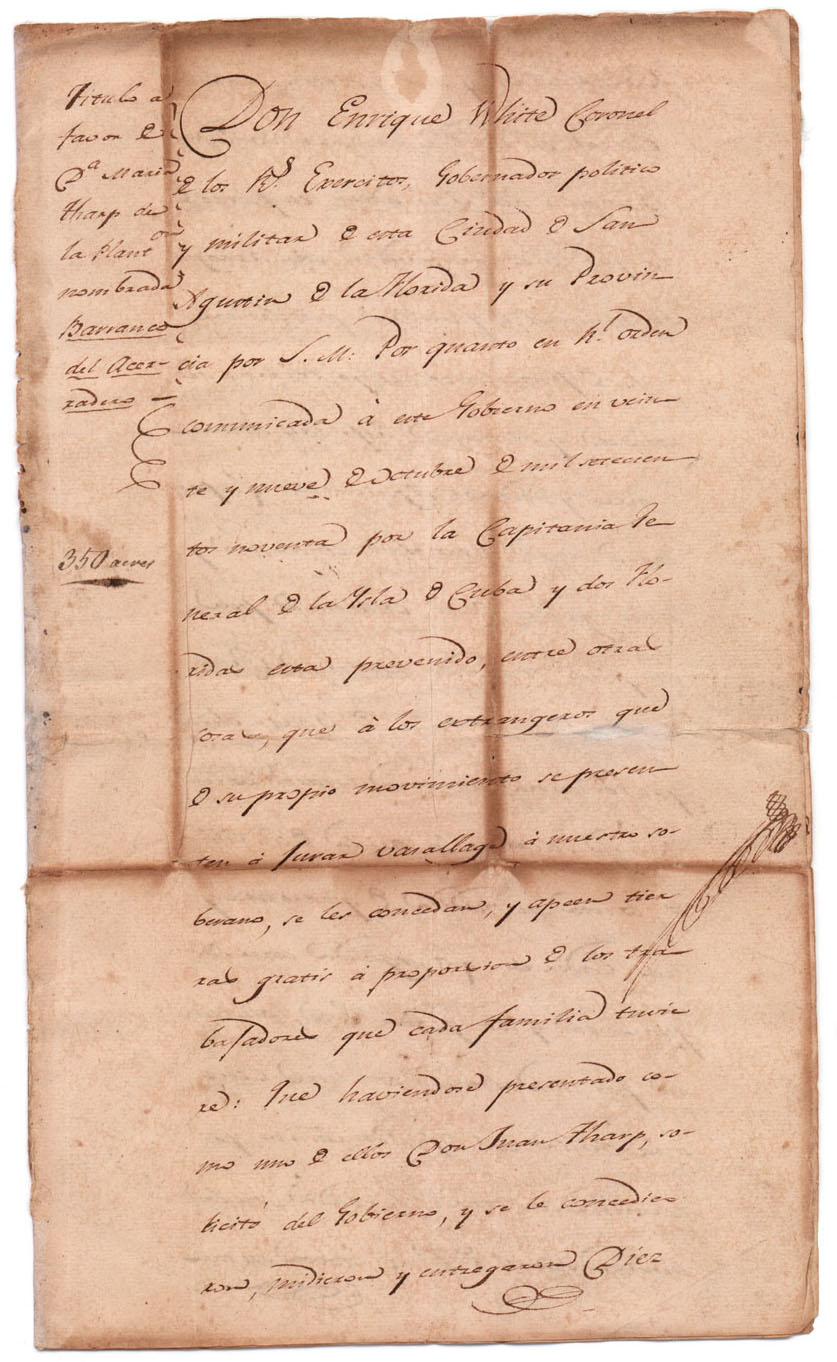 Titulo a
favor de
Dª Maria
Tharp de
la Planton
nombrada
Barranco
del Acer-
radero
350 acres
Don Enrique White Coronel
de los Rs. Exercitos, Gobernador politico
y militar de esta Ciudad de San
Agustin de la Florida y su Provin
cia por S. M: Por quanto en Rl. orden
comunicada à este Gobierno en vein
te y nueve de Octubre de mil setecien
tos noventa por la Capitania Ge
neral de la Ysla de Cuba y dos Flo-
ridas esta prevenido, entre otras
cosas, que à los extrangeros que
de su propio movimiento se presen
ten à Jurar vasallage à nuestro so-
berano, se les concedan, y apeen tier
ras gratis à proporsion de los tra
bajadores que cada familia tuvie
re: Que haviendose presentado co-
mo uno de ellos Don Juan Tharp, so-
licitó del Gobierno, y se le concedie
ron, midieron y entregaron Diez